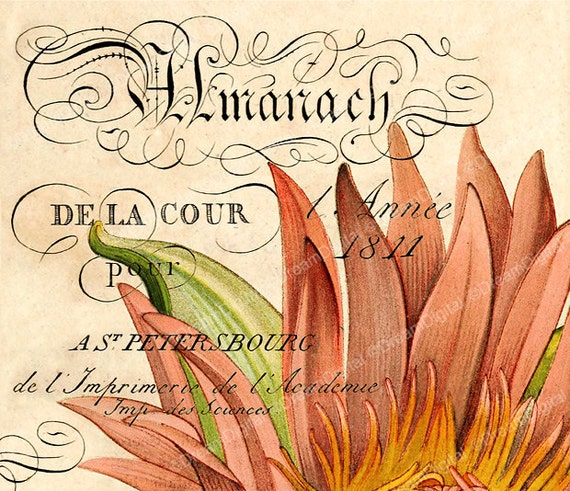 Almanach
DE LA COUR
pour
l'Année
1811
A ST PETERSBOURG
de l'Imprimerie de l'Académie
Imp. des Sciences